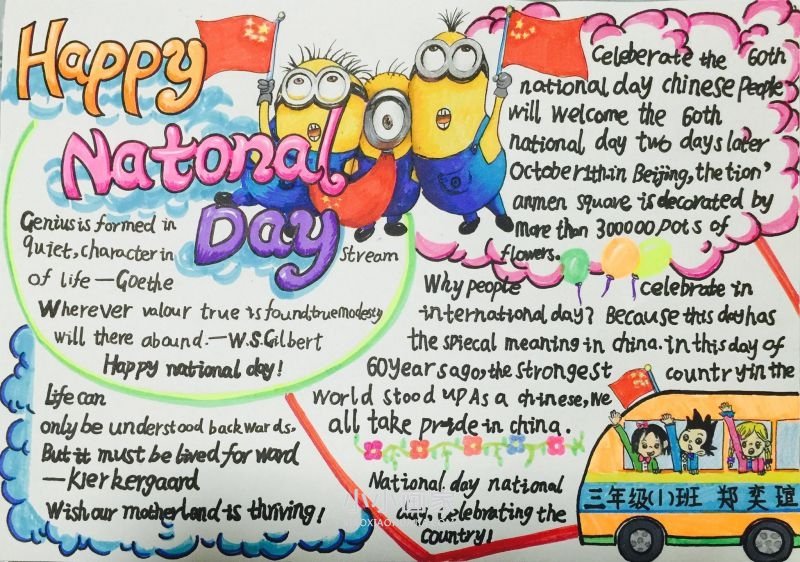 Happy
Natonal
Day
Genius is formed in
quiet, character in
Stream
of life — Goethe
Wherever valour true is found, true modesty
will there abound. — W.S. Gilbert
Happy national day!
Life can
only be understood backwards.
But it must be lived for word
— Kierkergaard
Wish our motherland is thriving!
Celeberate the 60th
national day chinese people
will welcome the 60th
national day two days later
October 1th. in Beijing, the tion'
anmen square is decorated by
more than 300000 pots of
flowers.
Why people celebrate in
international day? Because this day has
the spiecal meaning in china. in this day of
60 years ago, the strongest country in the
world stood up As a chinese, we
all take pride in china.
National day national
day, celebrating the
country!
三年级(1)班 郑奕瑄